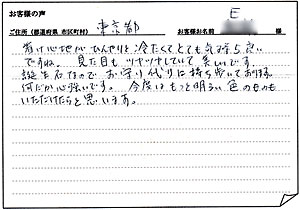 お客様の声
ご住所（都道府県 市区町村） 東京都 お客様お名前 E 様
着け心地がひんやりと冷たくてとても気持ち良い
ですね。見た目もツヤツヤしていて美しいです。
誕生石なのでお守り代りに持ち歩いております。
何だか心強いです。今度はもっと明るい色のものも
いただけたらと思います。